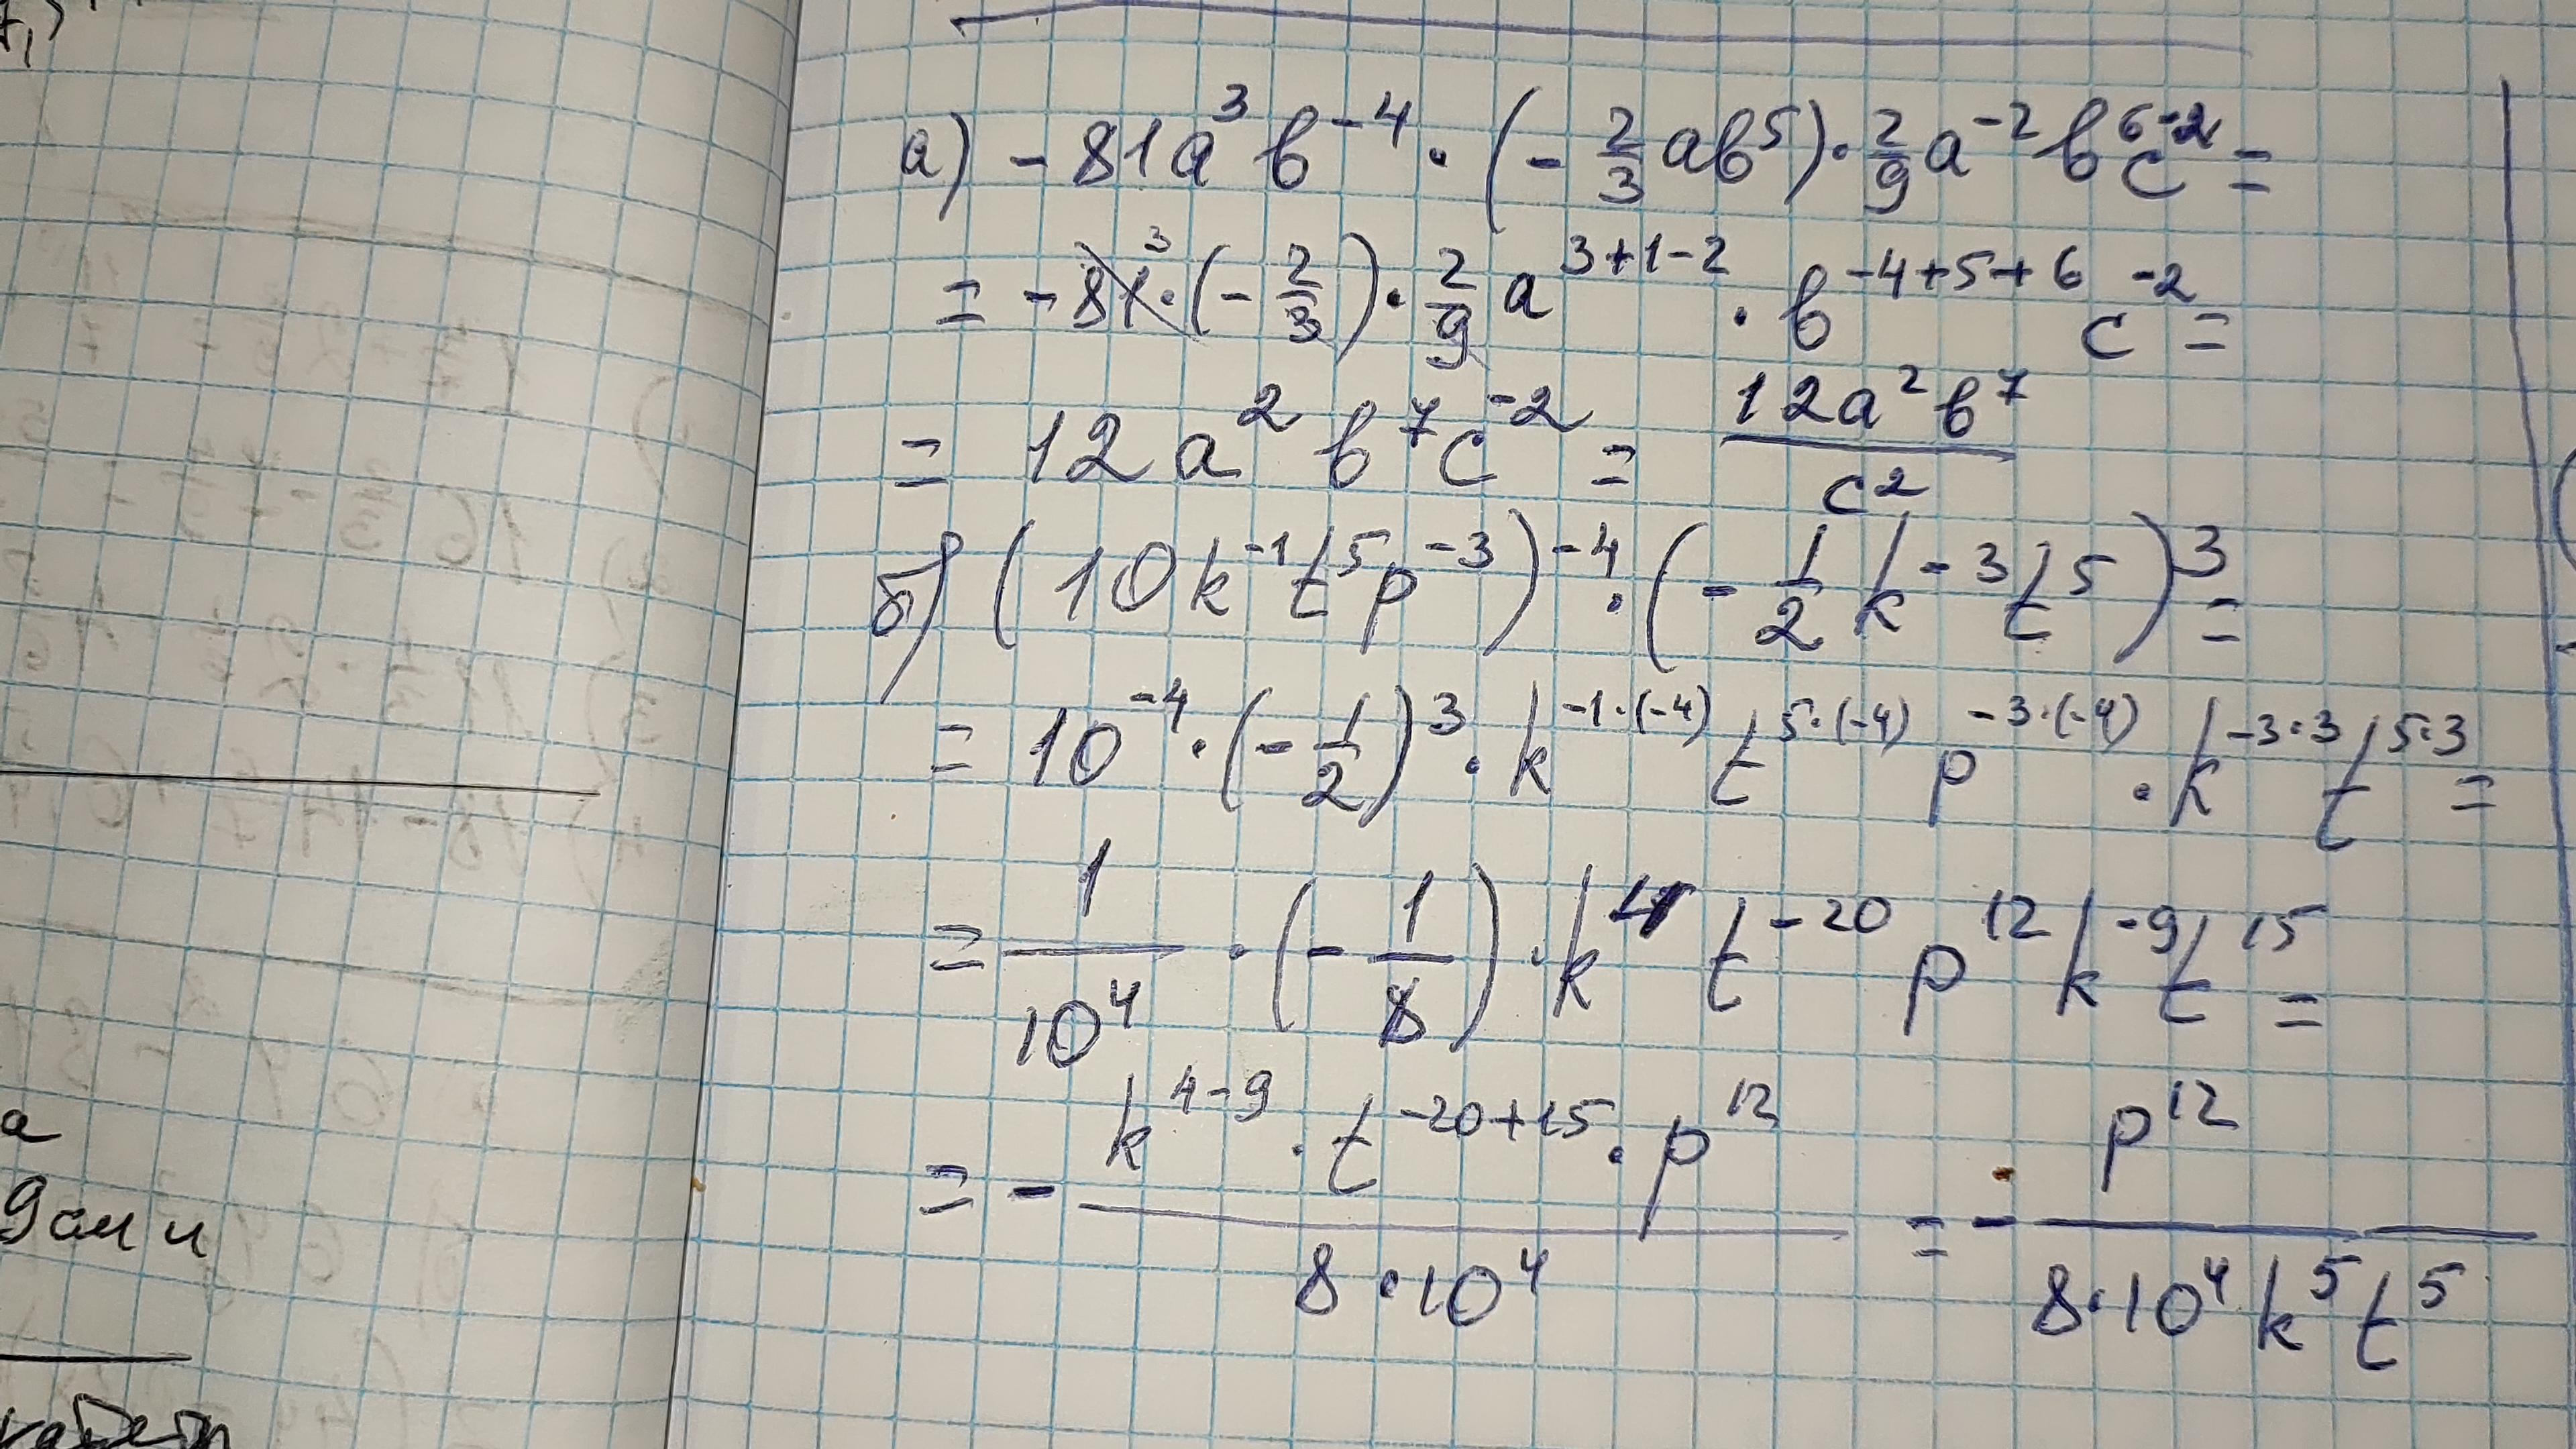 а) -81a³b⁻⁴ · (-2/3 ab⁵) · 2/9 a⁻²b⁶c⁻² =
= -81³ · (-2/3) · 2/9 a³⁺¹⁻² · b⁻⁴⁺⁵⁺⁶ c⁻² =
= 12a²b⁷c⁻² = 12a²b⁷/c²
б) (10k⁻¹t⁵p⁻³)⁻⁴ · (-1/2 k⁻³t⁵)³ =
= 10⁻⁴ · (-1/2)³ · k^(-1·(-4)) t^(5·(-4)) p^(-3·(-4)) · k^(-3·3) t^(5·3) =
= 1/10⁴ · (-1/8) · k⁴ t⁻²⁰ p¹² k⁻⁹ t¹⁵ =
= - (k⁴⁻⁹ · t⁻²⁰⁺¹⁵ · p¹²)/(8 · 10⁴) = - p¹²/(8·10⁴k⁵t⁵)